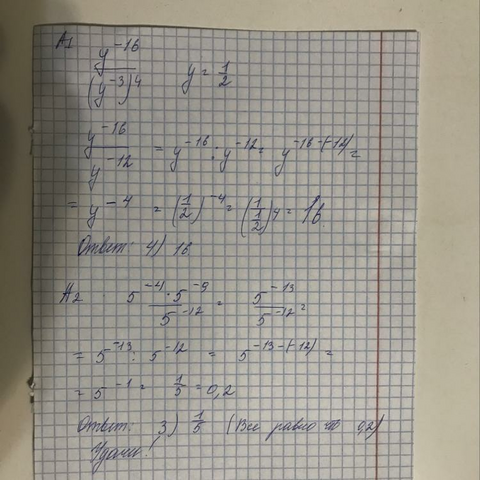 A1 y^-16 / (y^-3)^4 y = 1/2
y^-16 / y^-12 = y^-16 : y^-12 = y^-16-(-12) =
= y^-4 = (1/2)^-4 = (1 / 1/2)^4 = 16
Ответ: 4) 16
A2. 5^-4 · 5^-9 / 5^-12 = 5^-13 / 5^-12 =
= 5^-13 : 5^-12 = 5^-13-(-12) =
= 5^-1 = 1/5 = 0,2
Ответ: 3) 1/5 (Все равно что 0,2)
Удачи!